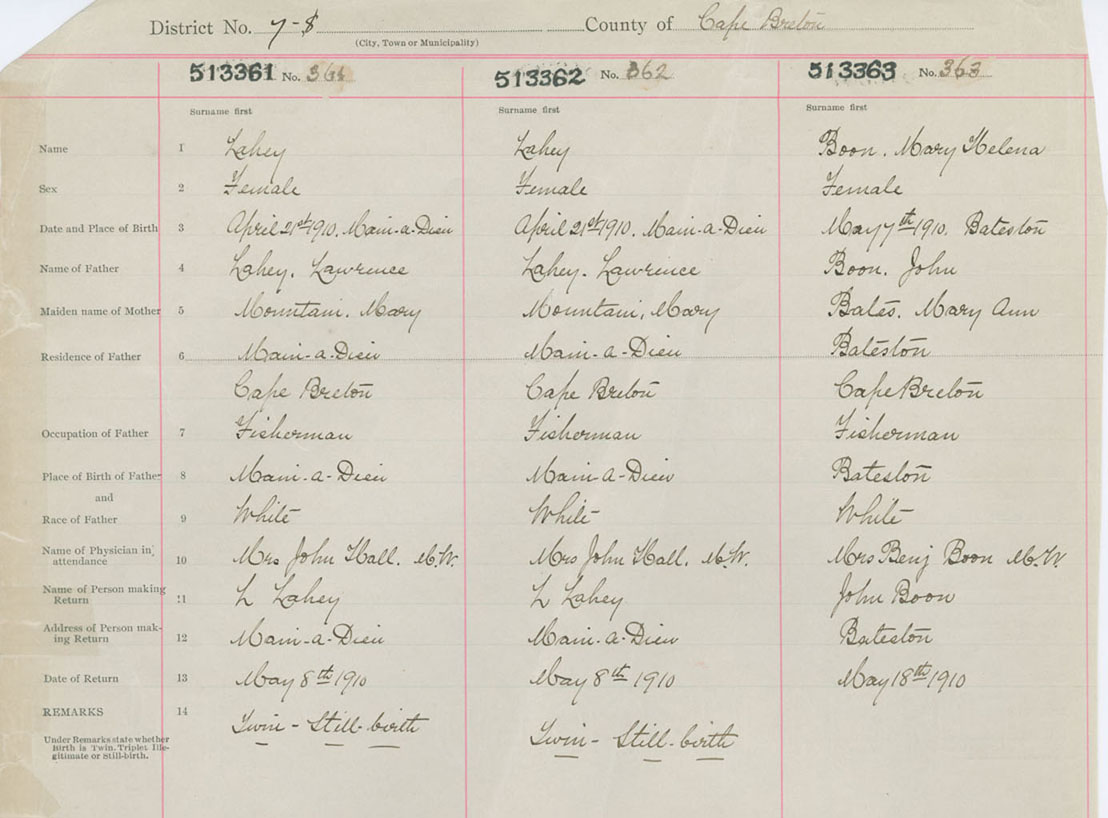 District No. 7-8 County of Cape Breton
(City, Town or Municipality)
513361 No. 361 513362 No. 362 513363 No. 363
Surname first Surname first Surname first
Name 1 Lahey Lahey Boon, Mary Helena
Sex 2 Female Female Female
Date and Place of Birth 3 April 21st 1910. Main-a-Dieu April 21st 1910. Main-a-Dieu May 7th 1910. Bateston
Name of Father 4 Lahey, Lawrence Lahey, Lawrence Boon, John
Maiden name of Mother 5 Mountain, Mary Mountain, Mary Bates, Mary Ann
Residence of Father 6 Main-a-Dieu Main-a-Dieu Bateston
Cape Breton Cape Breton Cape Breton
Occupation of Father 7 Fisherman Fisherman Fisherman
Place of Birth of Father 8 Main-a-Dieu Main-a-Dieu Bateston
and
Race of Father 9 White White White
Name of Physician in attendance 10 Mrs John Hall, M.W. Mrs John Hall, M.W. Mrs Benj Boon M.W.
Name of Person making Return 11 L Lahey L Lahey John Boon
Address of Person making Return 12 Main-a-Dieu Main-a-Dieu Bateston
Date of Return 13 May 8th 1910 May 8th 1910 May 18th 1910
REMARKS 14 Twin - Still-birth Twin - Still-birth
Under Remarks state whether
Birth is Twin, Triplet, Ille-
gitimate or Still-birth.